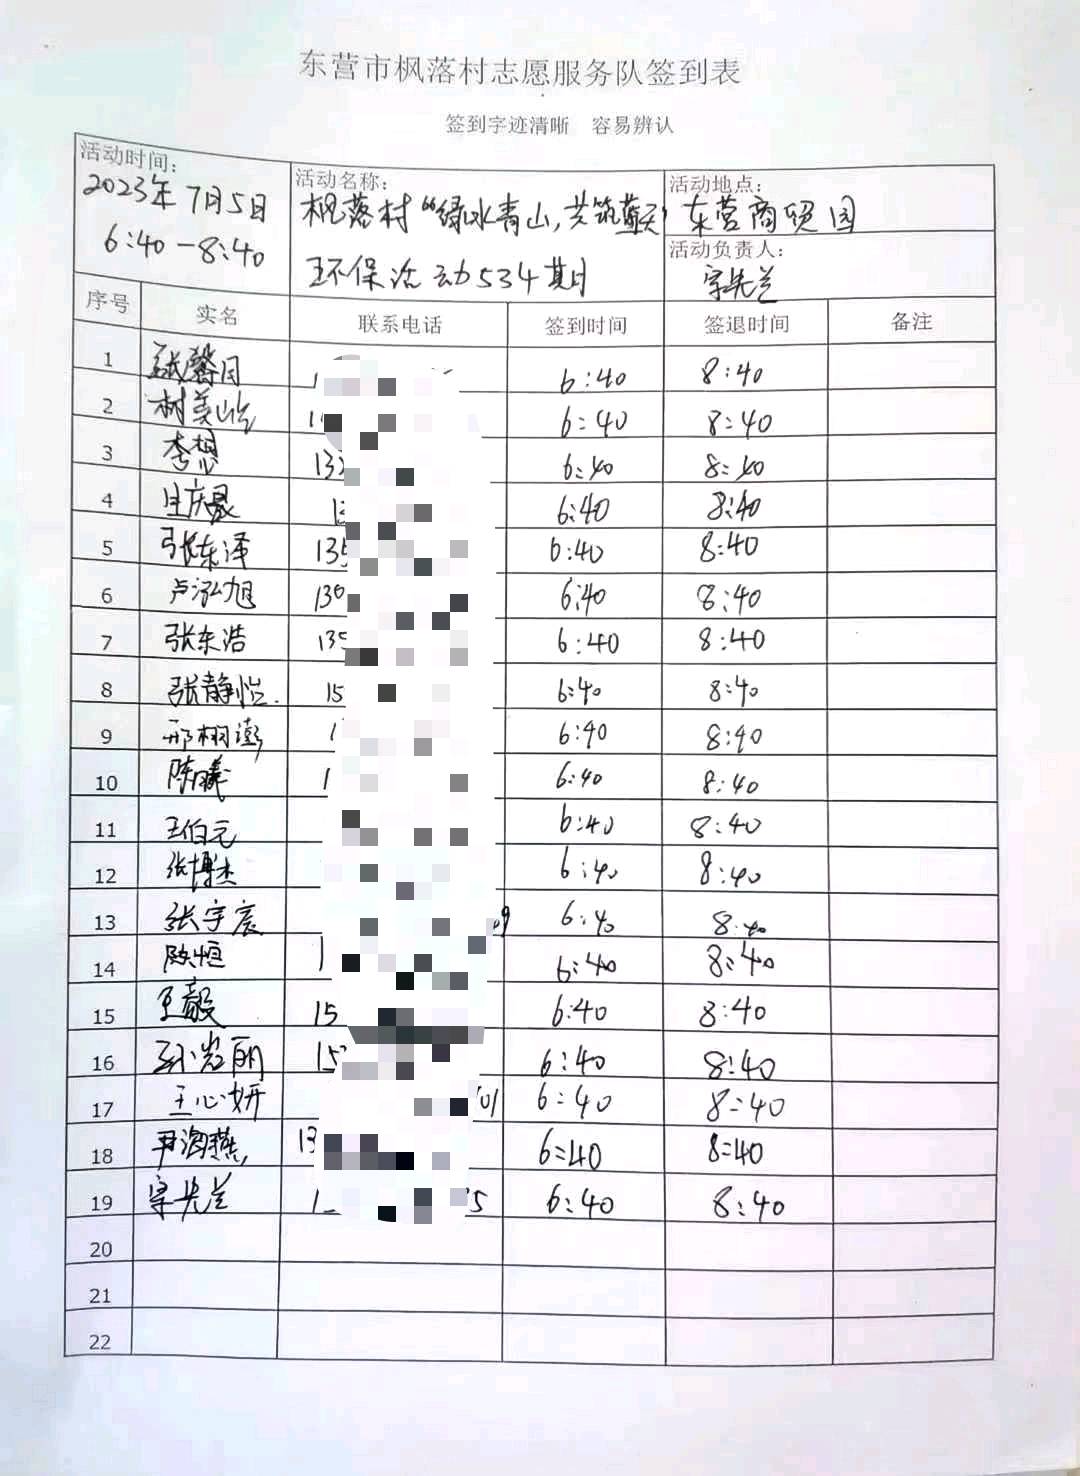 东营市枫落村志愿服务队签到表
签到字迹清晰 容易辨认
活动时间:
2023年7月5日
6:40-8:40
活动名称:
枫落村“绿水青山,共筑蓝天”
环保活动534期
活动地点:
东营商贸园
活动负责人:
序号 实名 联系电话 签到时间 签退时间 备注
1 张馨月 1 6:40 8:40
2 6:40 8:40
3 李想 13 6:40 8:40
4 庄庆晟 1 6:40 8:40
5 张东泽 135 6:40 8:40
6 卢泓旭 130 6:40 8:40
7 张东浩 135 6:40 8:40
8 张静怡. 15 6:40 8:40
9 邢栩澎 1 6:40 8:40
10 陈曦 1 6:40 8:40
11 王伯元 6:40 8:40
12 张博杰 6:40 8:40
13 张宇宸 9 6:40 8:40
14 1 6:40 8:40
15 王毅 15 6:40 8:40
16 15 6:40 8:40
17 王心妍 01 6:40 8:40
18 尹海燕 13 6:40 8:40
19 1 5 6:40 8:40
20
21
22